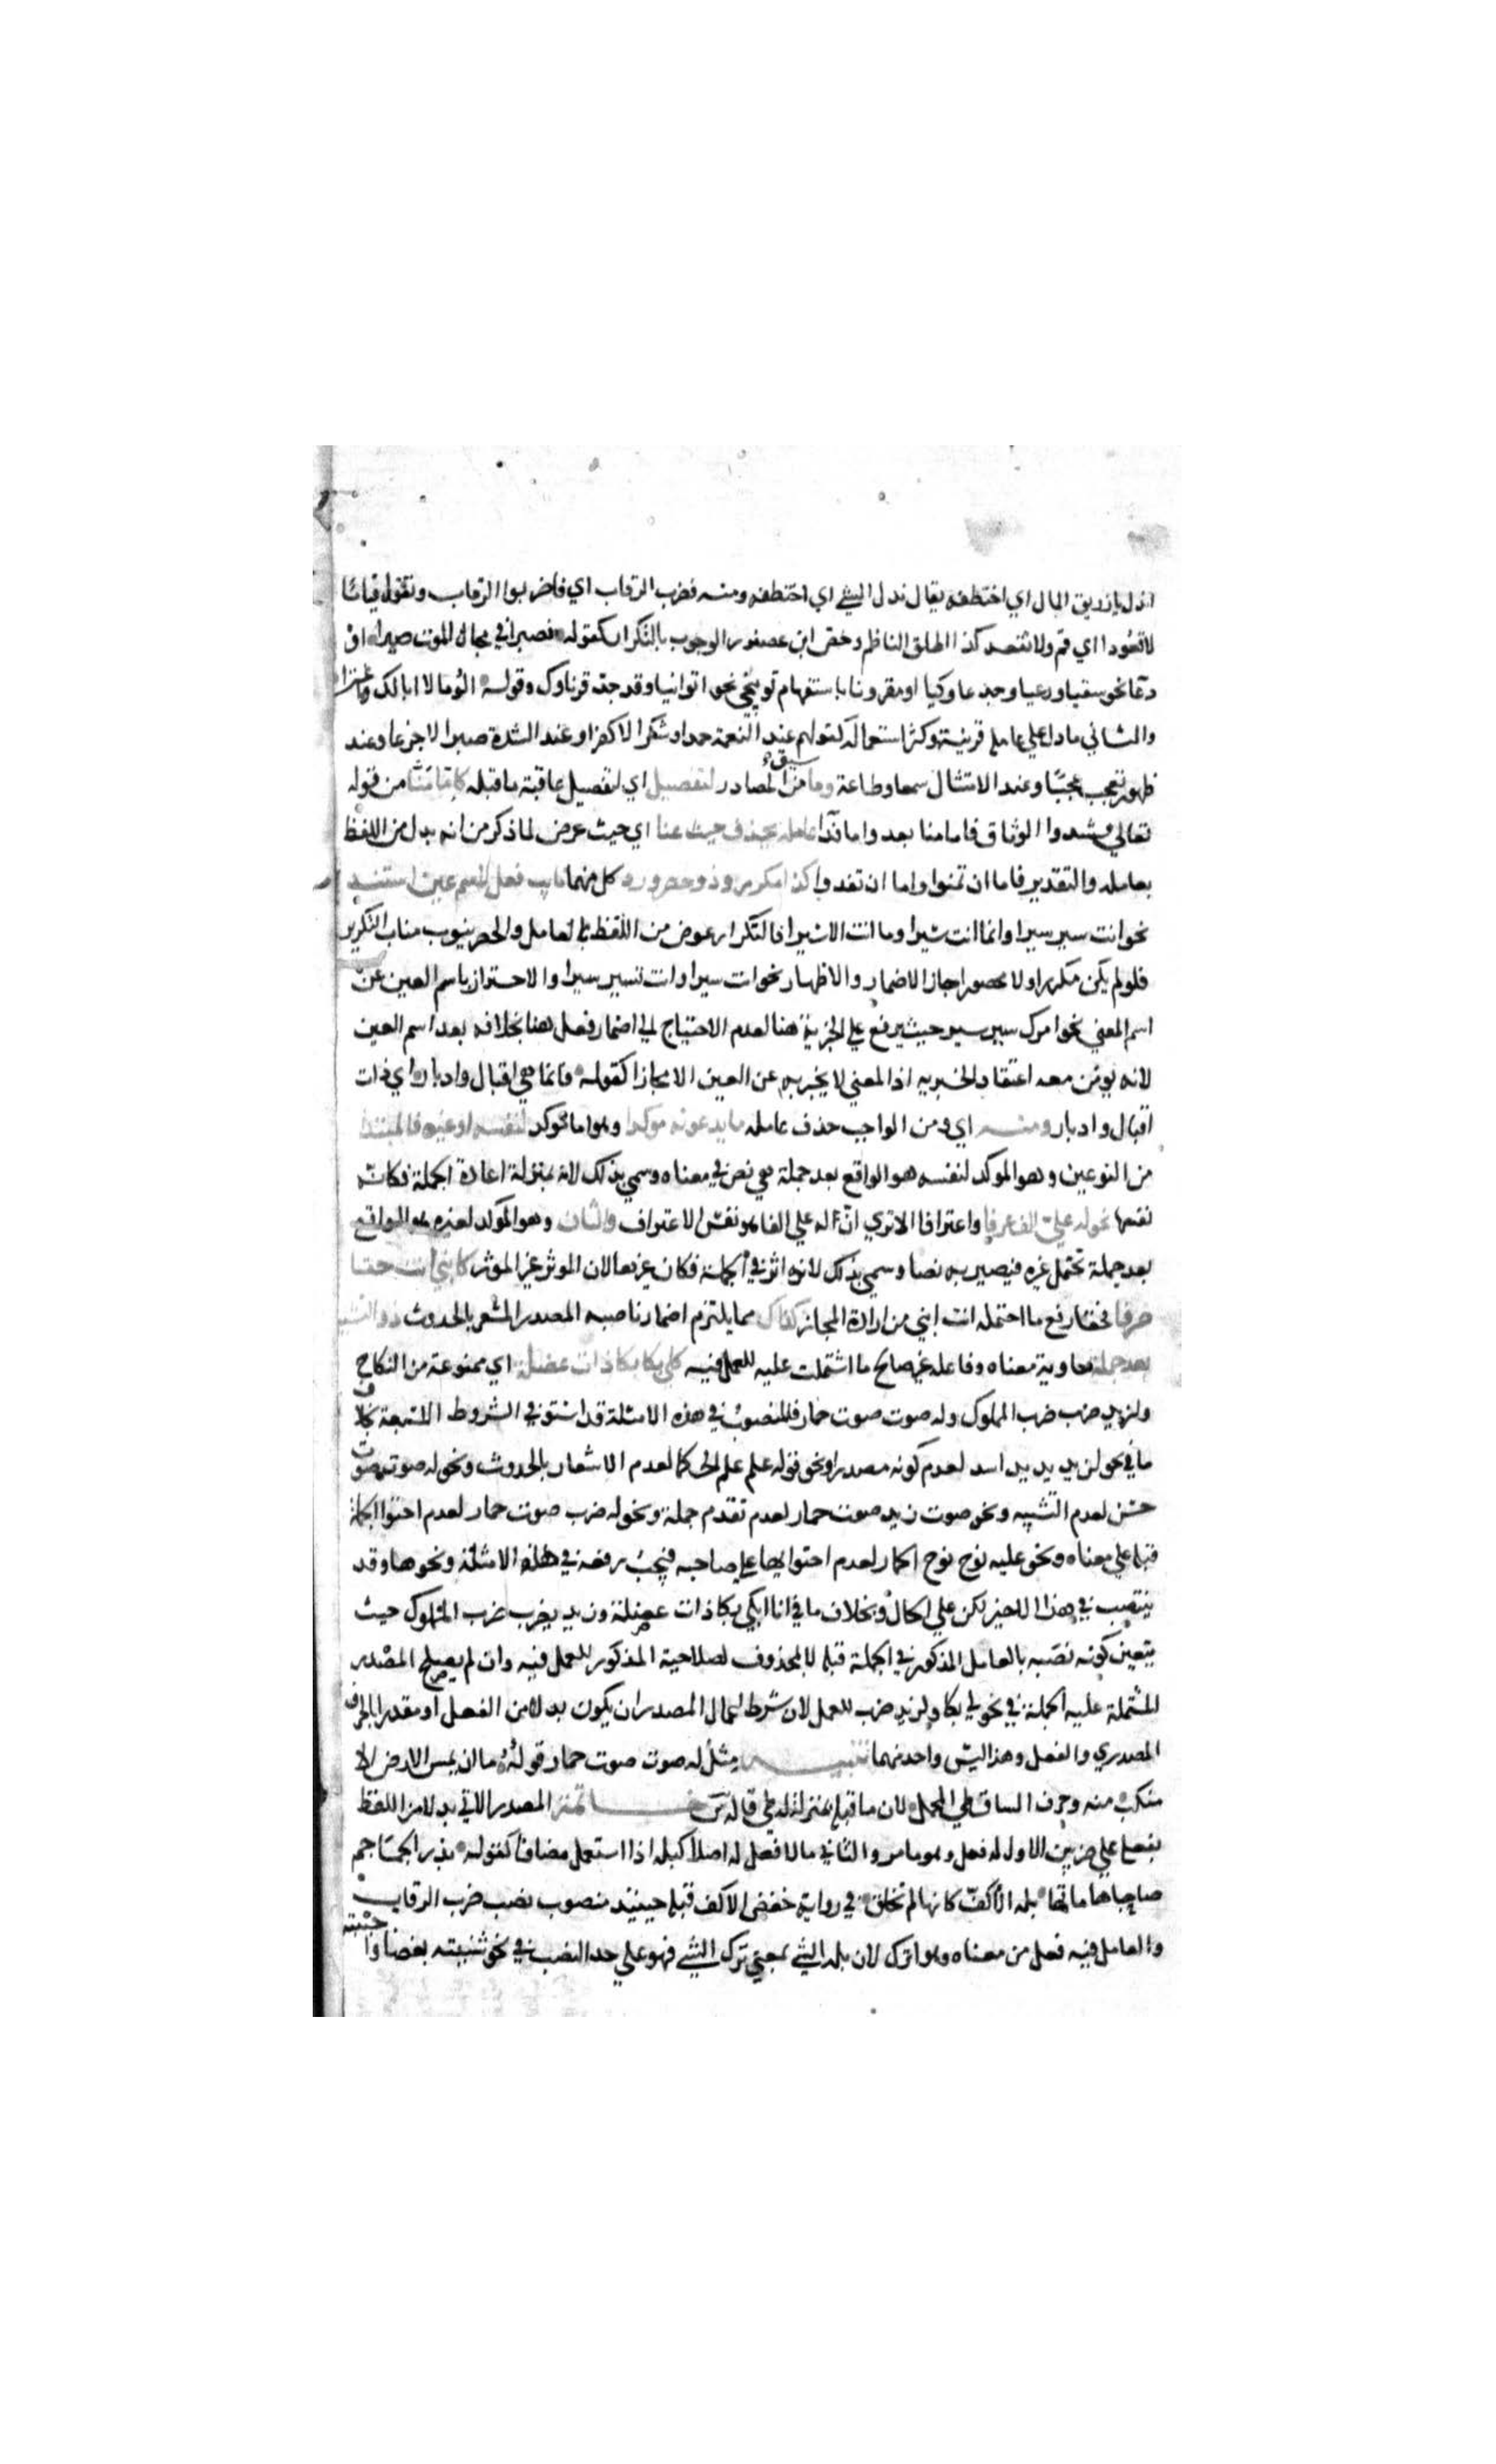 اندل يا زريق المال اي اختطفه يقال ندل الشي اي اختطفه ومنه فضرب الرقاب اي فاضربوا الرقاب وتقول قياما
لا قعودا اي قم ولا تقعد كذا اطلق الناظم وخص ابن عصفور الوجوب بالتكرار كقوله فصبرا في مجال الموت صبرا او
دعا نحو سقيا ورعيا وجدعا وكيا او مقرونا باستفهام توبيخي نحو اتوانيا وقد جد قرناوك وقوله الوما لا ابالك واغترابا
والثاني ما دل على عامله قرينة وكثر استعماله كقولهم عند النعمة حمدا وشكرا لا كفرا وعند الشدة صبرا لا جزعا وعند
ظهور تعجب عجبا وعند الامتثال سمعا وطاعة وما سيق من المصادر لتفصيل اي لتفصيل عاقبة ما قبله كاما منا من قوله
تعالى فشدوا الوثاق فاما منا بعد واما فدا عامله يحذف حيث عنا اي حيث عرض لما ذكر من انه بدل من اللفظ
بعامله والتقدير فاما ان تمنوا واما ان تفدوا كذا مكرر وذو حصر ورد كل منهما نايب فعل لاسم عين استند
نحو انت سير سيرا وانما انت سيرا وما انت الا سيرا فالتكرار عوض من اللفظ بالعامل والحصر ينوب مناب التكرير
فلو لم يكن مكررا ولا محصورا جاز الاضمار والاظهار نحو انت سيرا وانت تسير سيرا والاحتراز باسم العين عن
اسم المعني نحو امرك سير سير حيث يرفع علي الخبرية هنا لعدم الاحتياج الي اضمار فعل هنا بخلافه بعد اسم العين
لانه يومن معه اعتقاد الخبريه اذ المعني لا يخبر به عن العين الا مجازا كقوله فانما هي اقبال وادبار اي ذات
اقبال وادبار ومنه اي ومن الواجب حذف عامله ما يدعونه موكدا وهو اما موكد لنفسه او غيره فالمبتدا
من النوعين وهو الموكد لنفسه هو الواقع بعد جملة هي نص في معناه وسمي بذلك لانه بمنزلة اعادة الجملة فكانه
نفسها نحو له علي الف عرفا واعترافا الا تري ان له علي الف هو نفس الاعتراف والثان وهو الموكد لغيره هو الواقع
بعد جملة تحتمل غيره فيصير به نصا وسمي بذلك لانه اثر في الجملة فكان غيرها لان الموثر غير الموثر كابني انت حقا
صرفا فحقا رفع ما احتمله انت ابني من ارادة المجاز كذاك مما يلتزم اضمار ناصبه المصدر المشعر بالحدوث ذو التشبيه
بعد جملة حاوية معناه وفاعله غير صالح ما اشتملت عليه للعمل فيه كلي بكا بكا ذات عضلة اي ممنوعة من النكاح
ولزيد ضرب ضرب الملوك وله صوت صوت حمار فالمنصوب في هذه الامثلة قد استوفي الشروط السبعة بخلاف
ما في نحو لزيد يد يد اسد لعدم كونه مصدرا ونحو قوله علم علم الحكما لعدم الاشعار بالحدوث ونحو له صوت صوت
حسن لعدم التشبيه ونحو صوت زيد صوت حمار لعدم تقدم جملة ونحو له ضرب صوت حمار لعدم احتوا الجملة
قبله علي معناه ونحو عليه نوح نوح الحمام لعدم احتوائها علي صاحبه فيجب رفعه في هذه الامثلة ونحوها وقد
ينتصب في هذا الاخير لكن علي الحال وبخلاف ما في انا ابكي بكا ذات عضلة وزيد يضرب ضرب الملوك حيث
يتعين كونه نصبه بالعامل المذكور في الجملة قبله لا بمحذوف لصلاحية المذكور للعمل فيه وان لم يصلح المصدر
المشتملة عليه الجملة في نحو لي بكا ولزيد ضرب للعمل لان شرط اعمال المصدر ان يكون بدلا من الفعل او مقدرا بالحرف
المصدري والفعل وهذا ليس واحد منهما تنبيه مثل له صوت صوت حمار قوله ما ان يمس الارض الا
منكب منه وحرف الساق طي المحمل لان ما قبله بمنزلة له طي قاله س خاتمة المصدر الاتي بدلا من اللفظ
بفعله علي ضربين الاول له فعل وهو ما مر والثاني ما لا فعل له اصلا كبله اذا استعمل مضافا كقوله تذر الجماجم
ضاحيا هاماتها بله الاكف كانها لم تخلق في رواية خفض الاكف فبله حينيذ منصوب نصب ضرب الرقاب
والعامل فيه فعل من معناه وهو اترك لان بله الشي بمعني ترك الشي فهو علي حد النصب في نحو شنيته بغضا واحببته